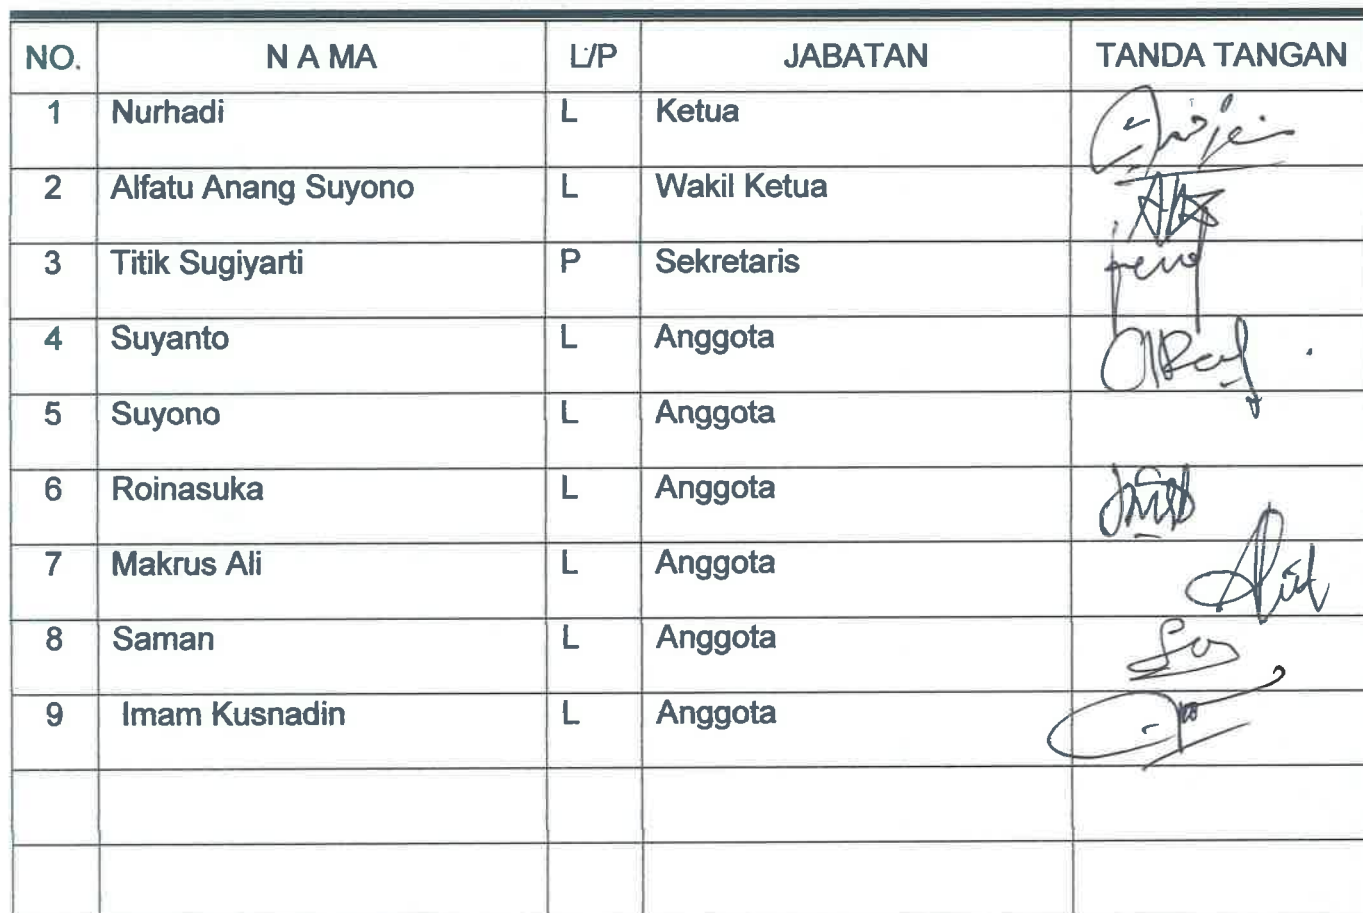 NO. N A MA L/P JABATAN TANDA TANGAN
1 Nurhadi L Ketua
2 Alfatu Anang Suyono L Wakil Ketua
3 Titik Sugiyarti P Sekretaris
4 Suyanto L Anggota
5 Suyono L Anggota
6 Roinasuka L Anggota
7 Makrus Ali L Anggota
8 Saman L Anggota
9 Imam Kusnadin L Anggota